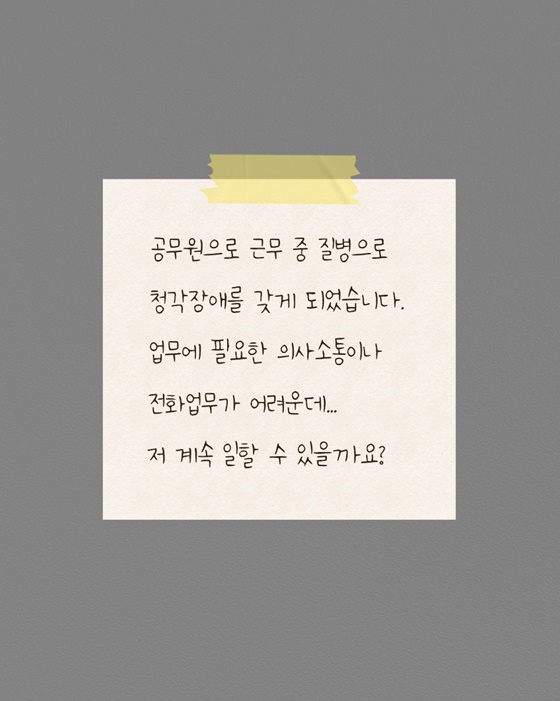 공무원으로 근무 중 질병으로
청각장애를 갖게 되었습니다.
업무에 필요한 의사소통이나
전화업무가 어려운데...
저 계속 일할 수 있을까요?